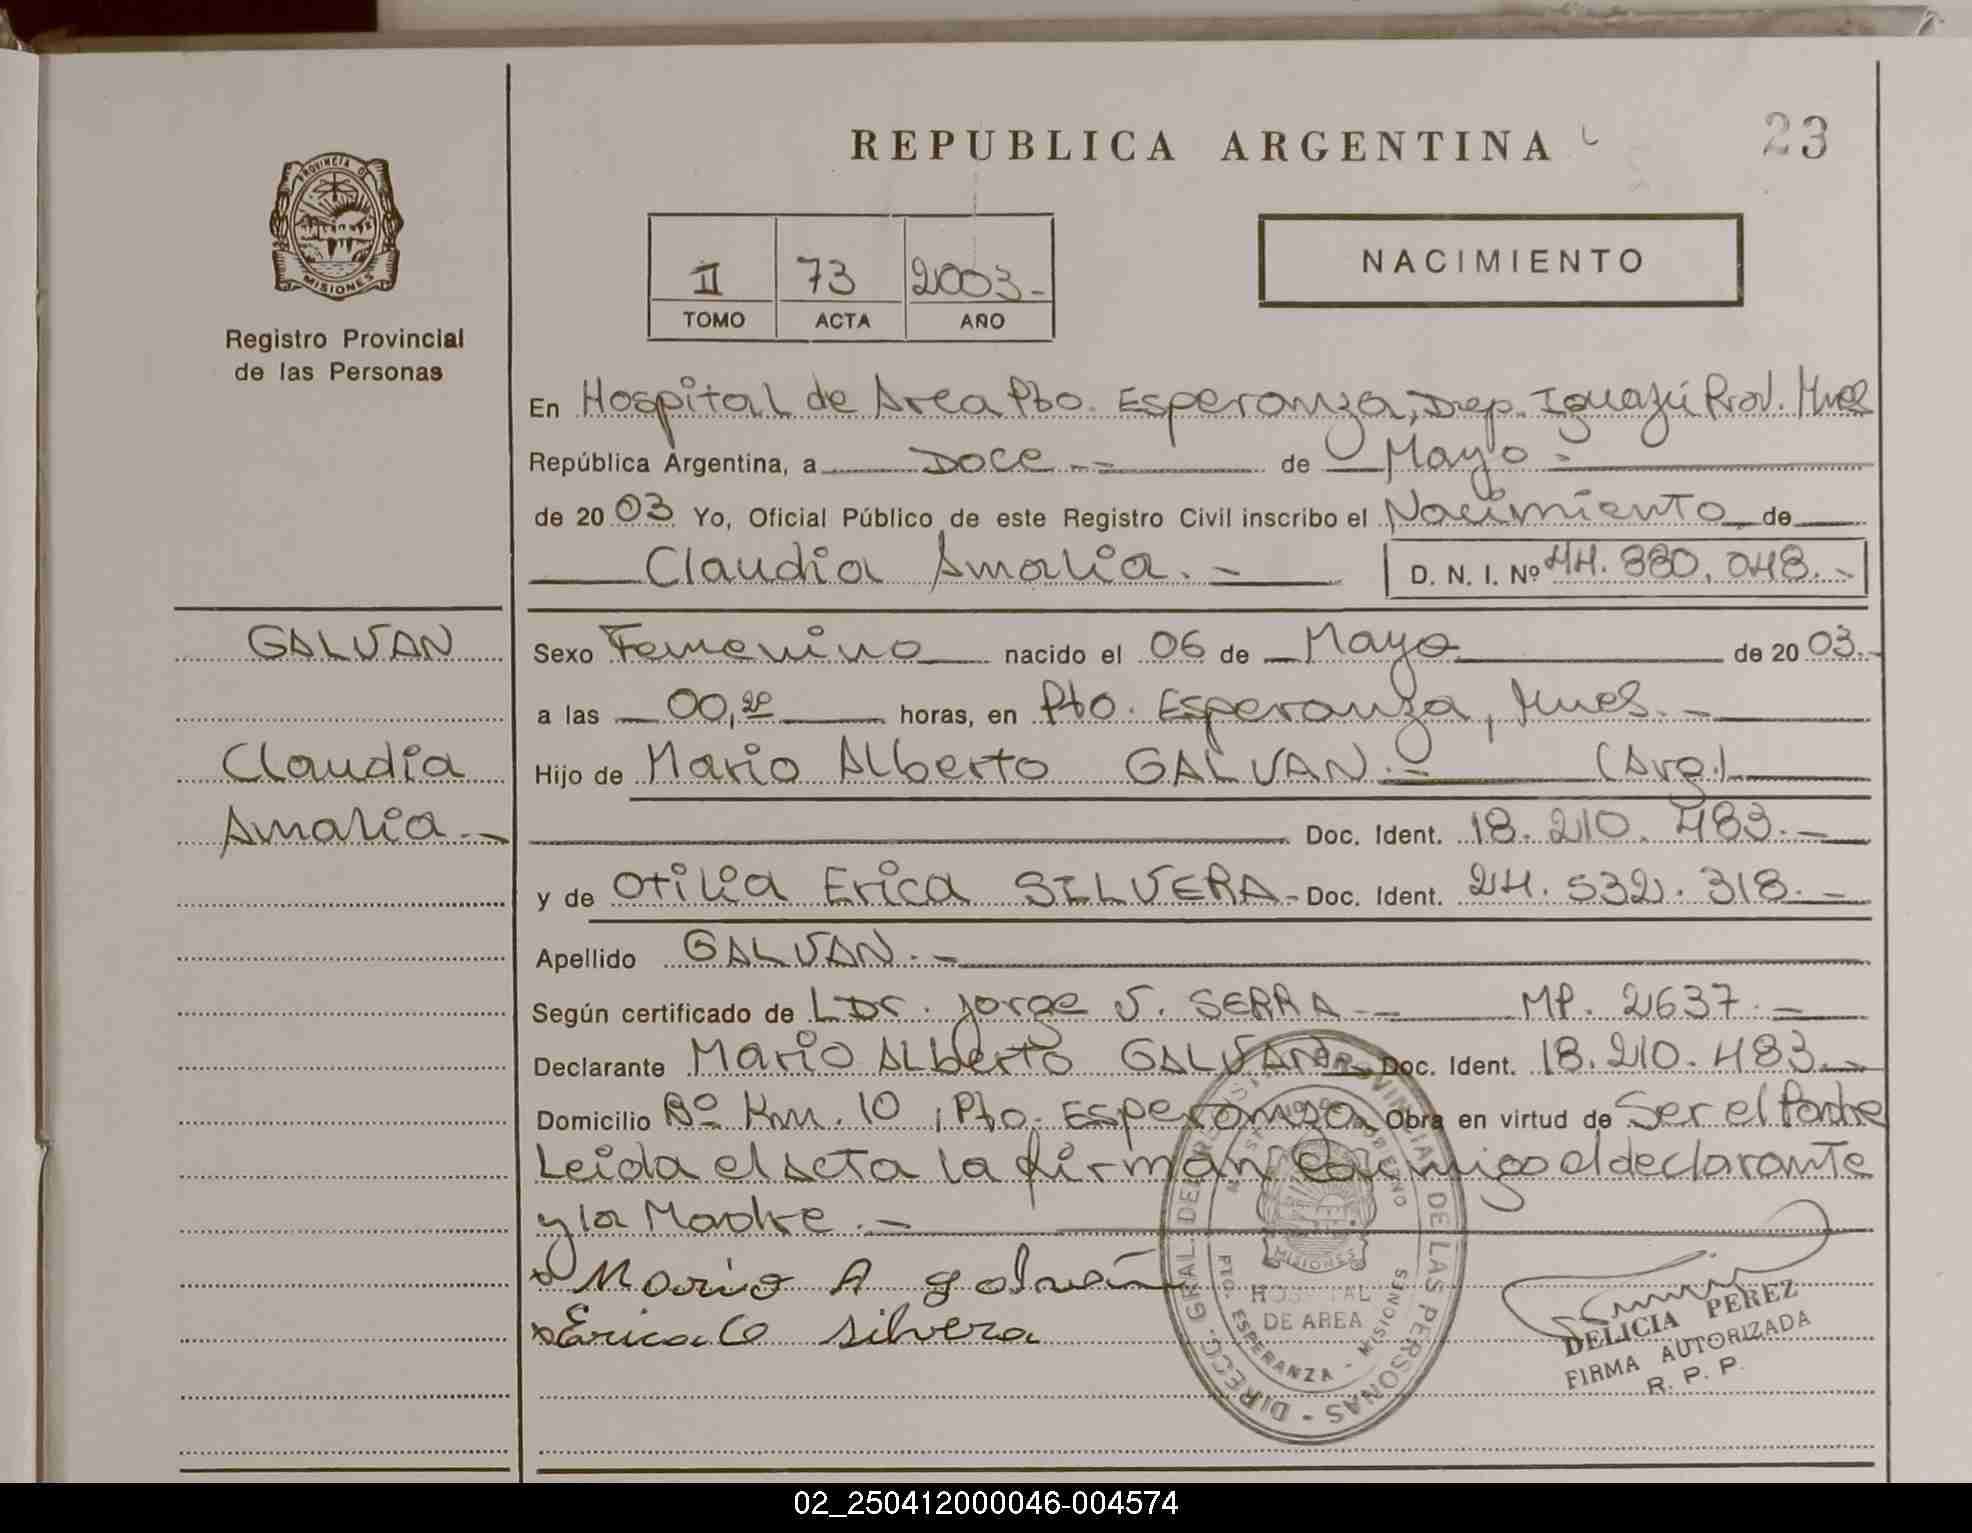 REPUBLICA ARGENTINA
23
PROVINCIA D
MISIONES
Registro Provincial
de las Personas
II 73 2003-
TOMO ACTA AÑO
NACIMIENTO
En Hospital de Area Pto. Esperanza, Dep. Iguazú Prov. Mnes
República Argentina, a Doce.-- de Mayo-
de 2003 Yo, Oficial Público de este Registro Civil inscribo el Nacimiento de
Claudia Amalia.- D. N. I. Nº 44.880.048.-
GALVAN
Claudia
Amalia.-
Sexo Femenino nacido el 06 de Mayo de 2003.-
a las 00,20 horas, en Pto. Esperanza, Mnes.-
Hijo de Mario Alberto GALVAN.- (Arg.)
Doc. Ident. 18.210.483.-
y de Otilia Erica SILVERA- Doc. Ident. 24.532.318.-
Apellido GALVAN.-
Según certificado de L Dr. Jorge V. SERRA-- MP. 2637.-
Declarante Mario Alberto GALVAN Doc. Ident. 18.210.483.-
Domicilio Bº Km. 10, Pto. Esperanza Obra en virtud de Ser el Padre
Leida el acta la firman conmigo el declarante
y la Madre.-
Mario A galván
Erica O silvera
DIRECC. GRAL. DEL REGISTRO PROVINCIAL DE LAS PERSONAS -
MISIONES
HOSPITAL
DE AREA
PTO. ESPERANZA - MISIONES
DELICIA PEREZ
FIRMA AUTORIZADA
R. P. P.
02_250412000046-004574